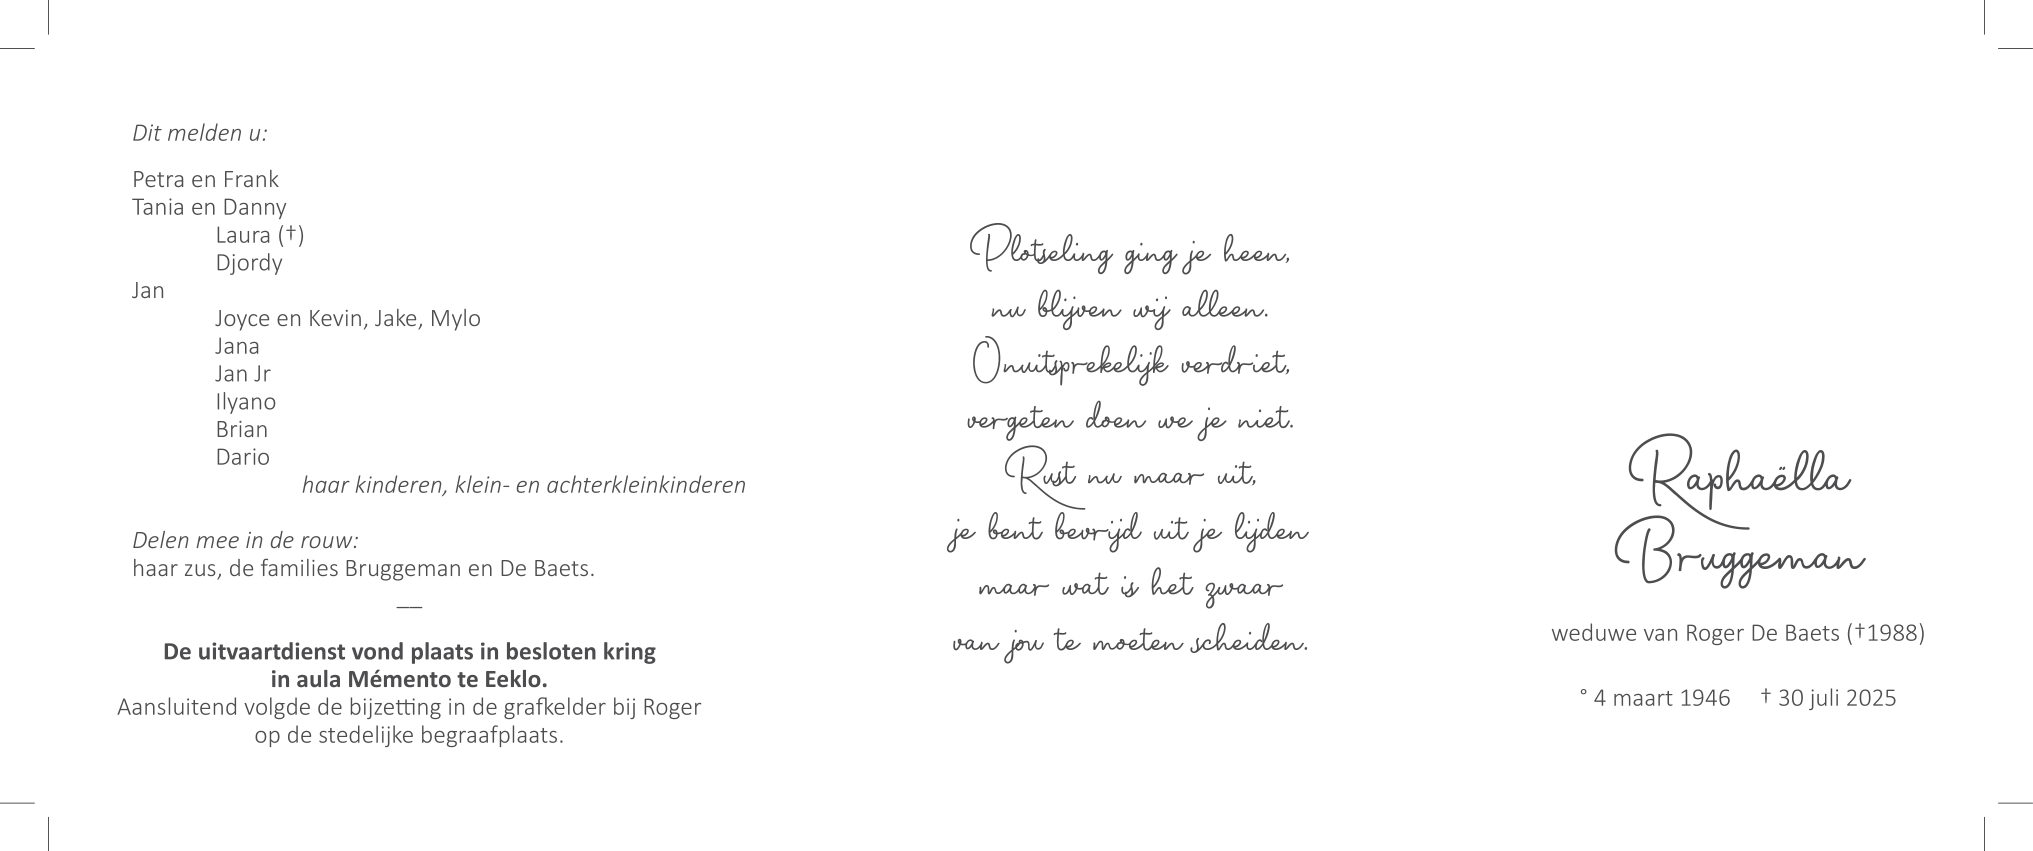 Dit melden u:
Petra en Frank
Tania en Danny
Laura (†)
Djordy
Jan
Joyce en Kevin, Jake, Mylo
Jana
Jan Jr
Ilyano
Brian
Dario
haar kinderen, klein- en achterkleinkinderen
Delen mee in de rouw:
haar zus, de families Bruggeman en De Baets.
__
De uitvaartdienst vond plaats in besloten kring
in aula Mémento te Eeklo.
Aansluitend volgde de bijzetting in de grafkelder bij Roger
op de stedelijke begraafplaats.
Plotseling ging je heen,
nu blijven wij alleen.
Onuitsprekelijk verdriet,
vergeten doen we je niet.
Rust nu maar uit,
je bent bevrijd uit je lijden
maar wat is het zwaar
van jou te moeten scheiden.
Raphaëlla
Bruggeman
weduwe van Roger De Baets (†1988)
° 4 maart 1946 † 30 juli 2025